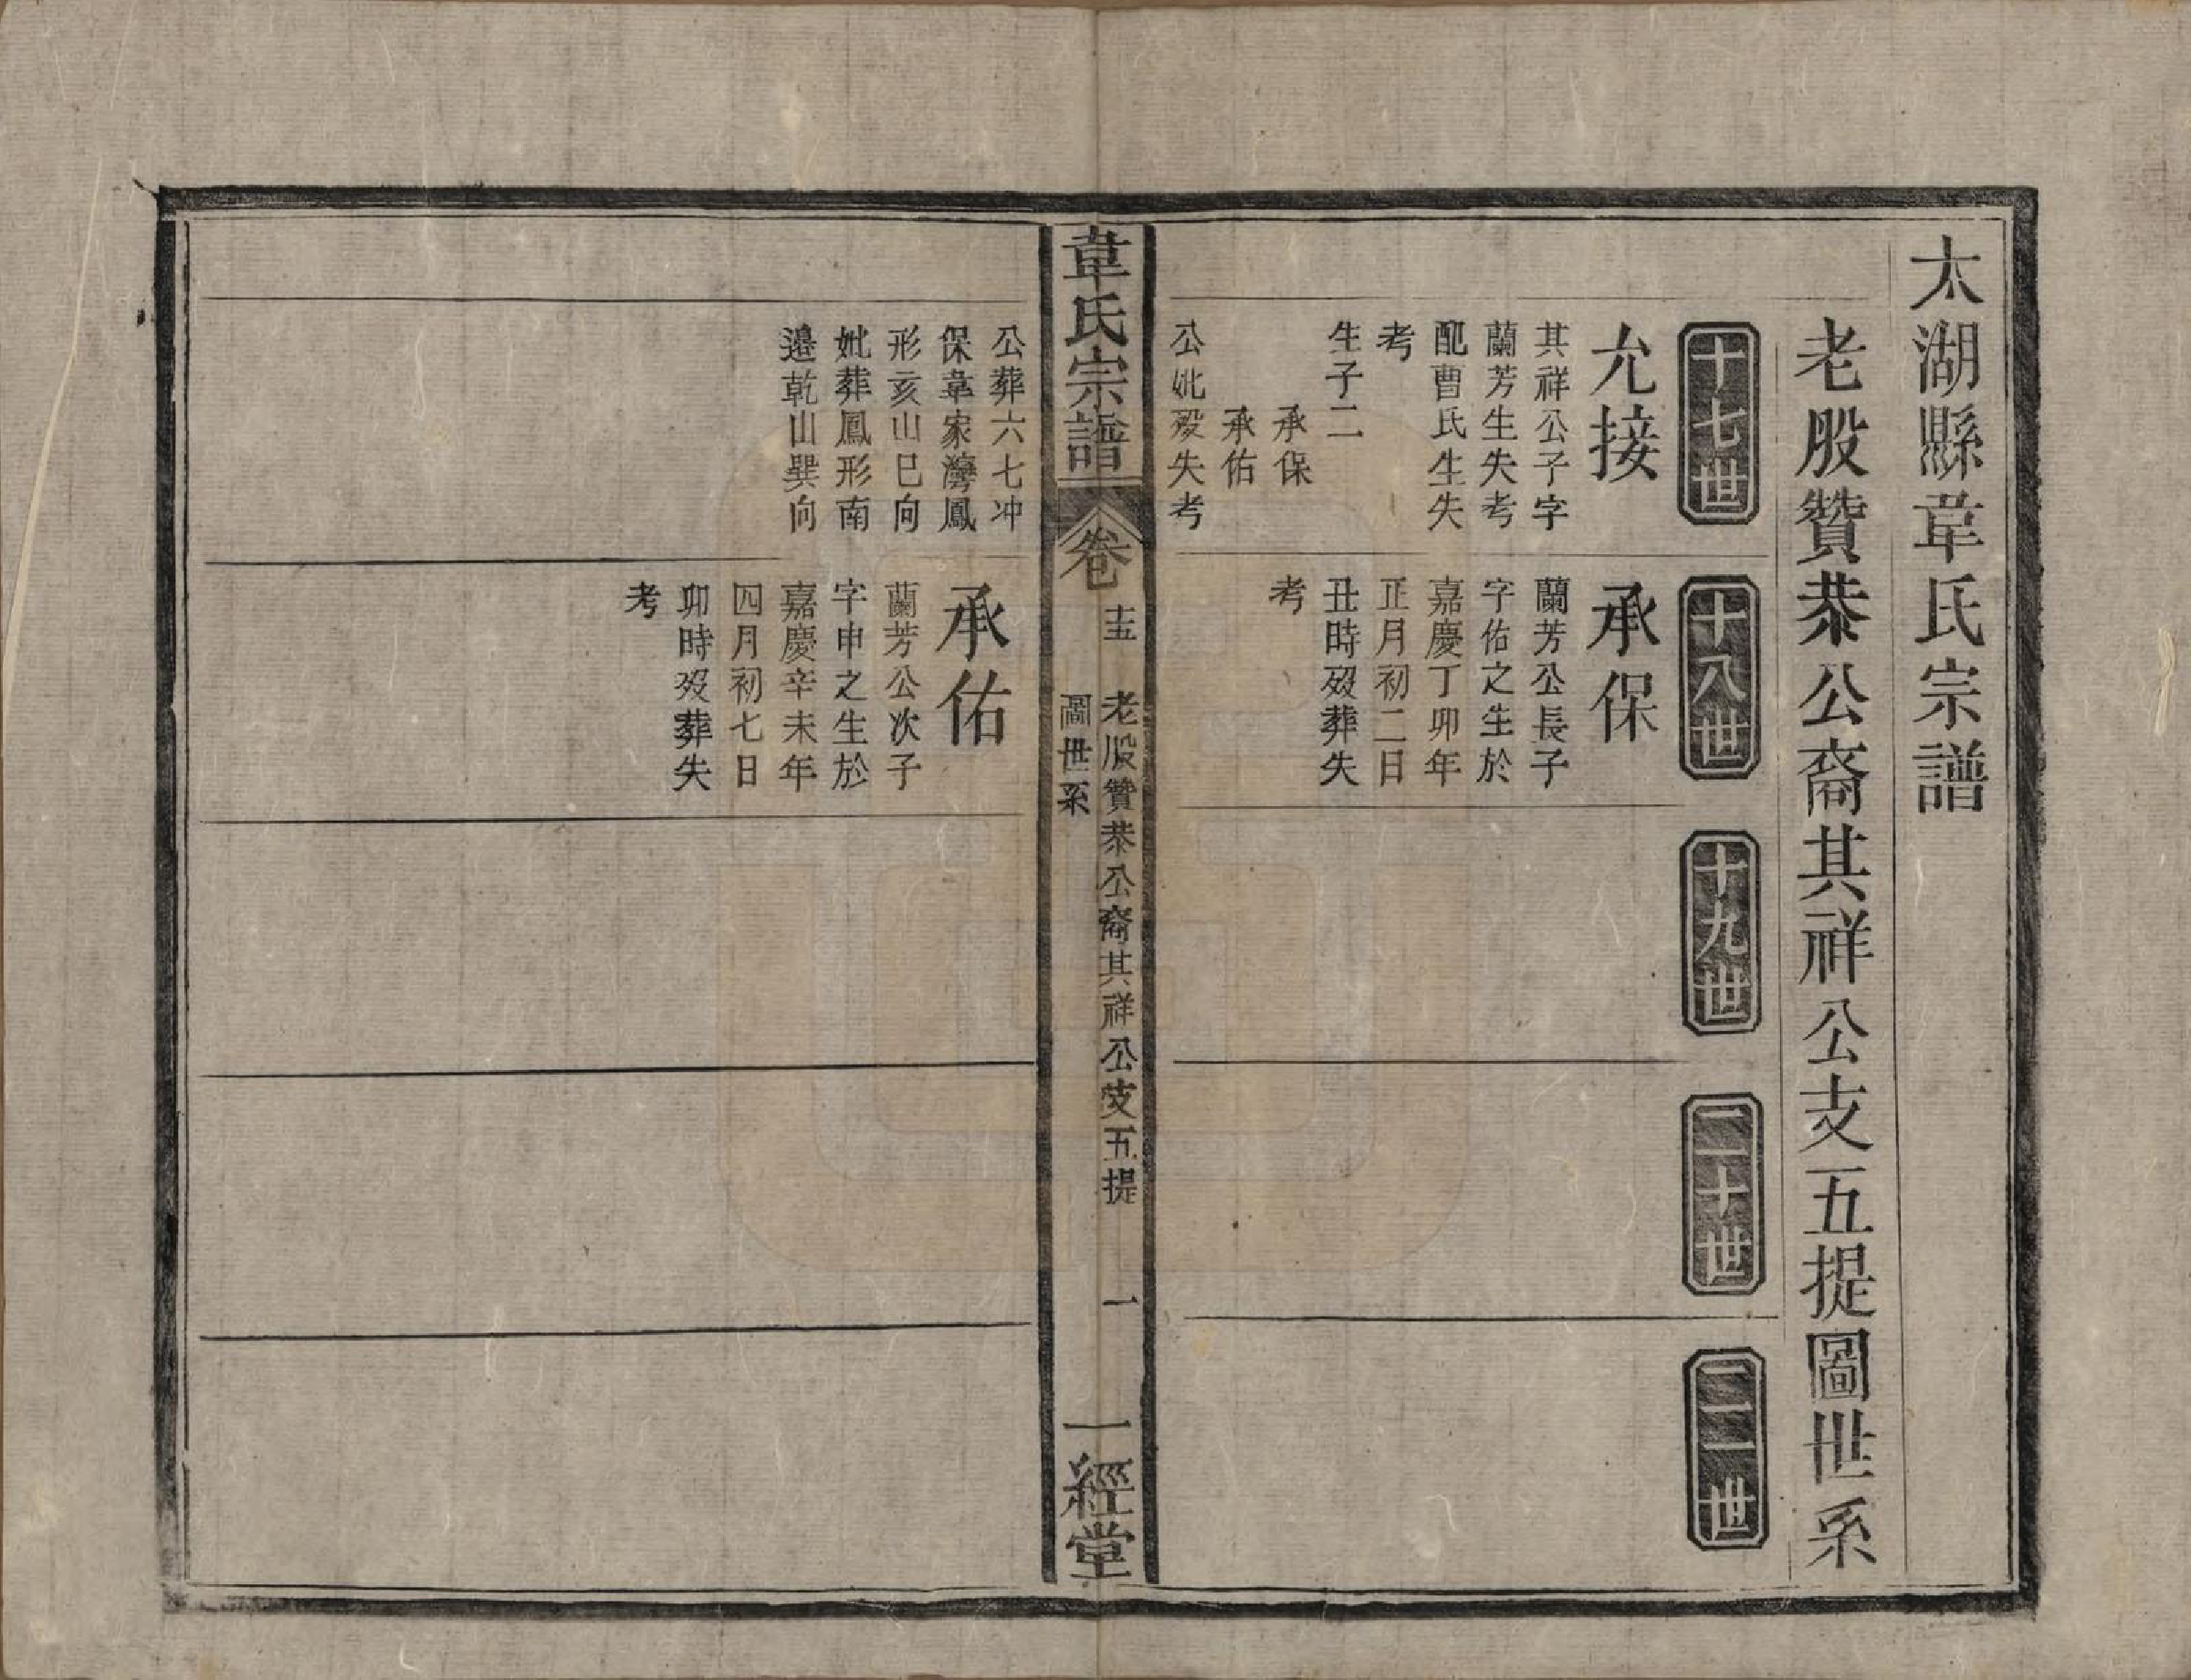 太湖縣韋氏宗譜
老股贊恭公裔其祥公支五提圖世系
十七世
允接
其祥公子字
蘭芳生失考
配曹氏生失
考
生子二
承保
承佑
公妣歿失考
十八世
承保
蘭芳公長子
字佑之生於
嘉慶丁卯年
正月初二日
丑時歿葬失
考
十九世
二十世
二一世
韋氏宗譜
卷
十五
老股贊恭公裔其祥公支五提
圖世系
一
一經堂
公葬六七冲
保韋家灣鳳
形亥山巳向
妣葬鳳形南
邊乾山巽向
承佑
蘭芳公次子
字申之生於
嘉慶辛未年
四月初七日
卯時歿葬失
考